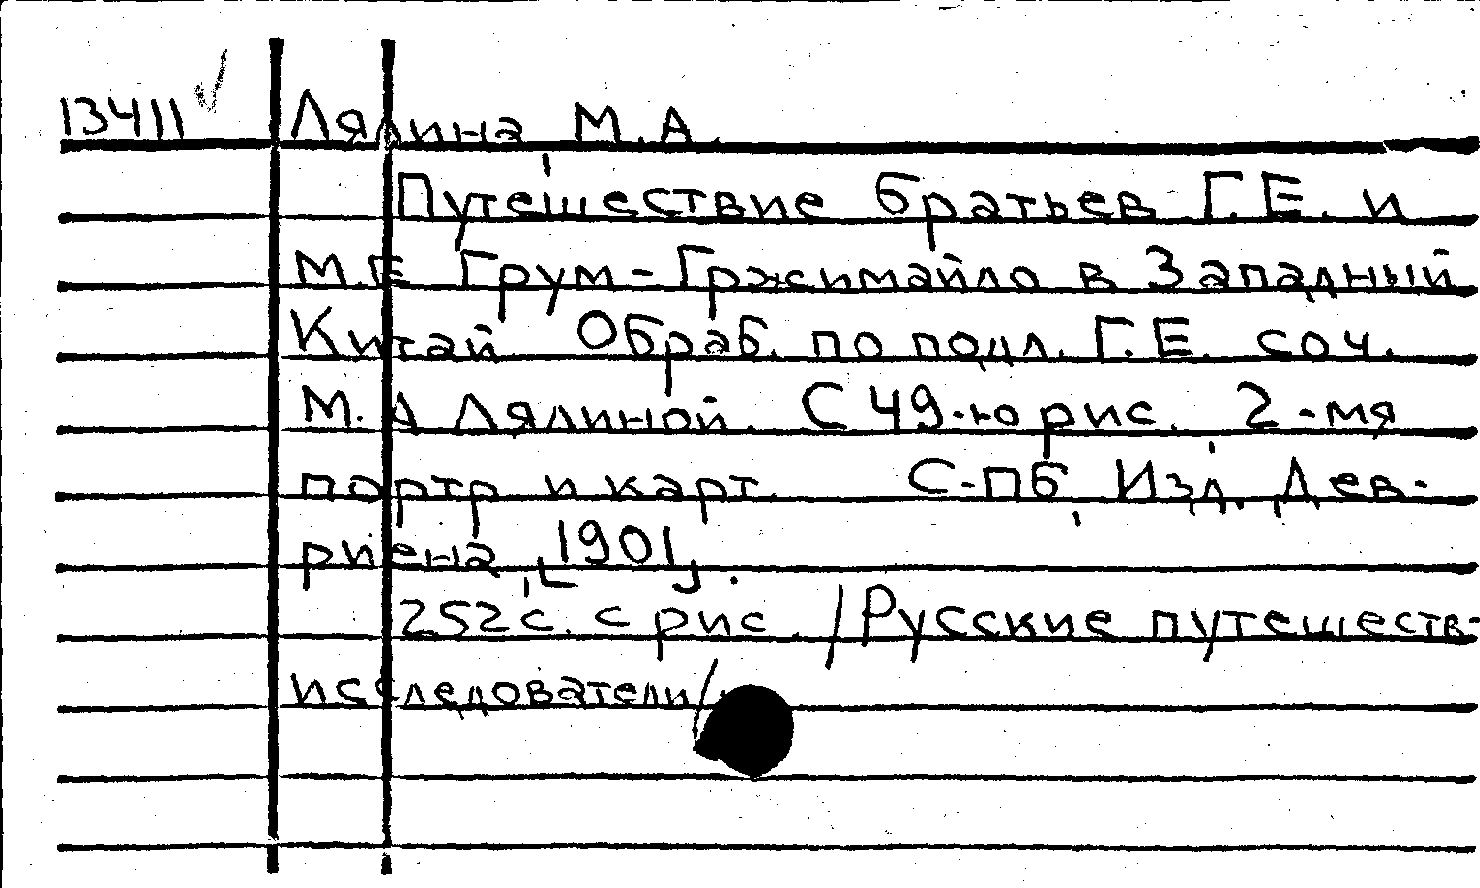 13411 Лялина М.А.
Путешествие братьев Г.Е. и
М.Е Грум-Гржимайло в Западный
Китай Обраб. по подл. Г.Е. соч.
М.А Лялиной. С 49-ю рис. 2-мя
портр и карт. С-ПБ, Изд. Дев-
риена, [1901].
252 с. с рис. /Русские путешеств-
исследователи/.